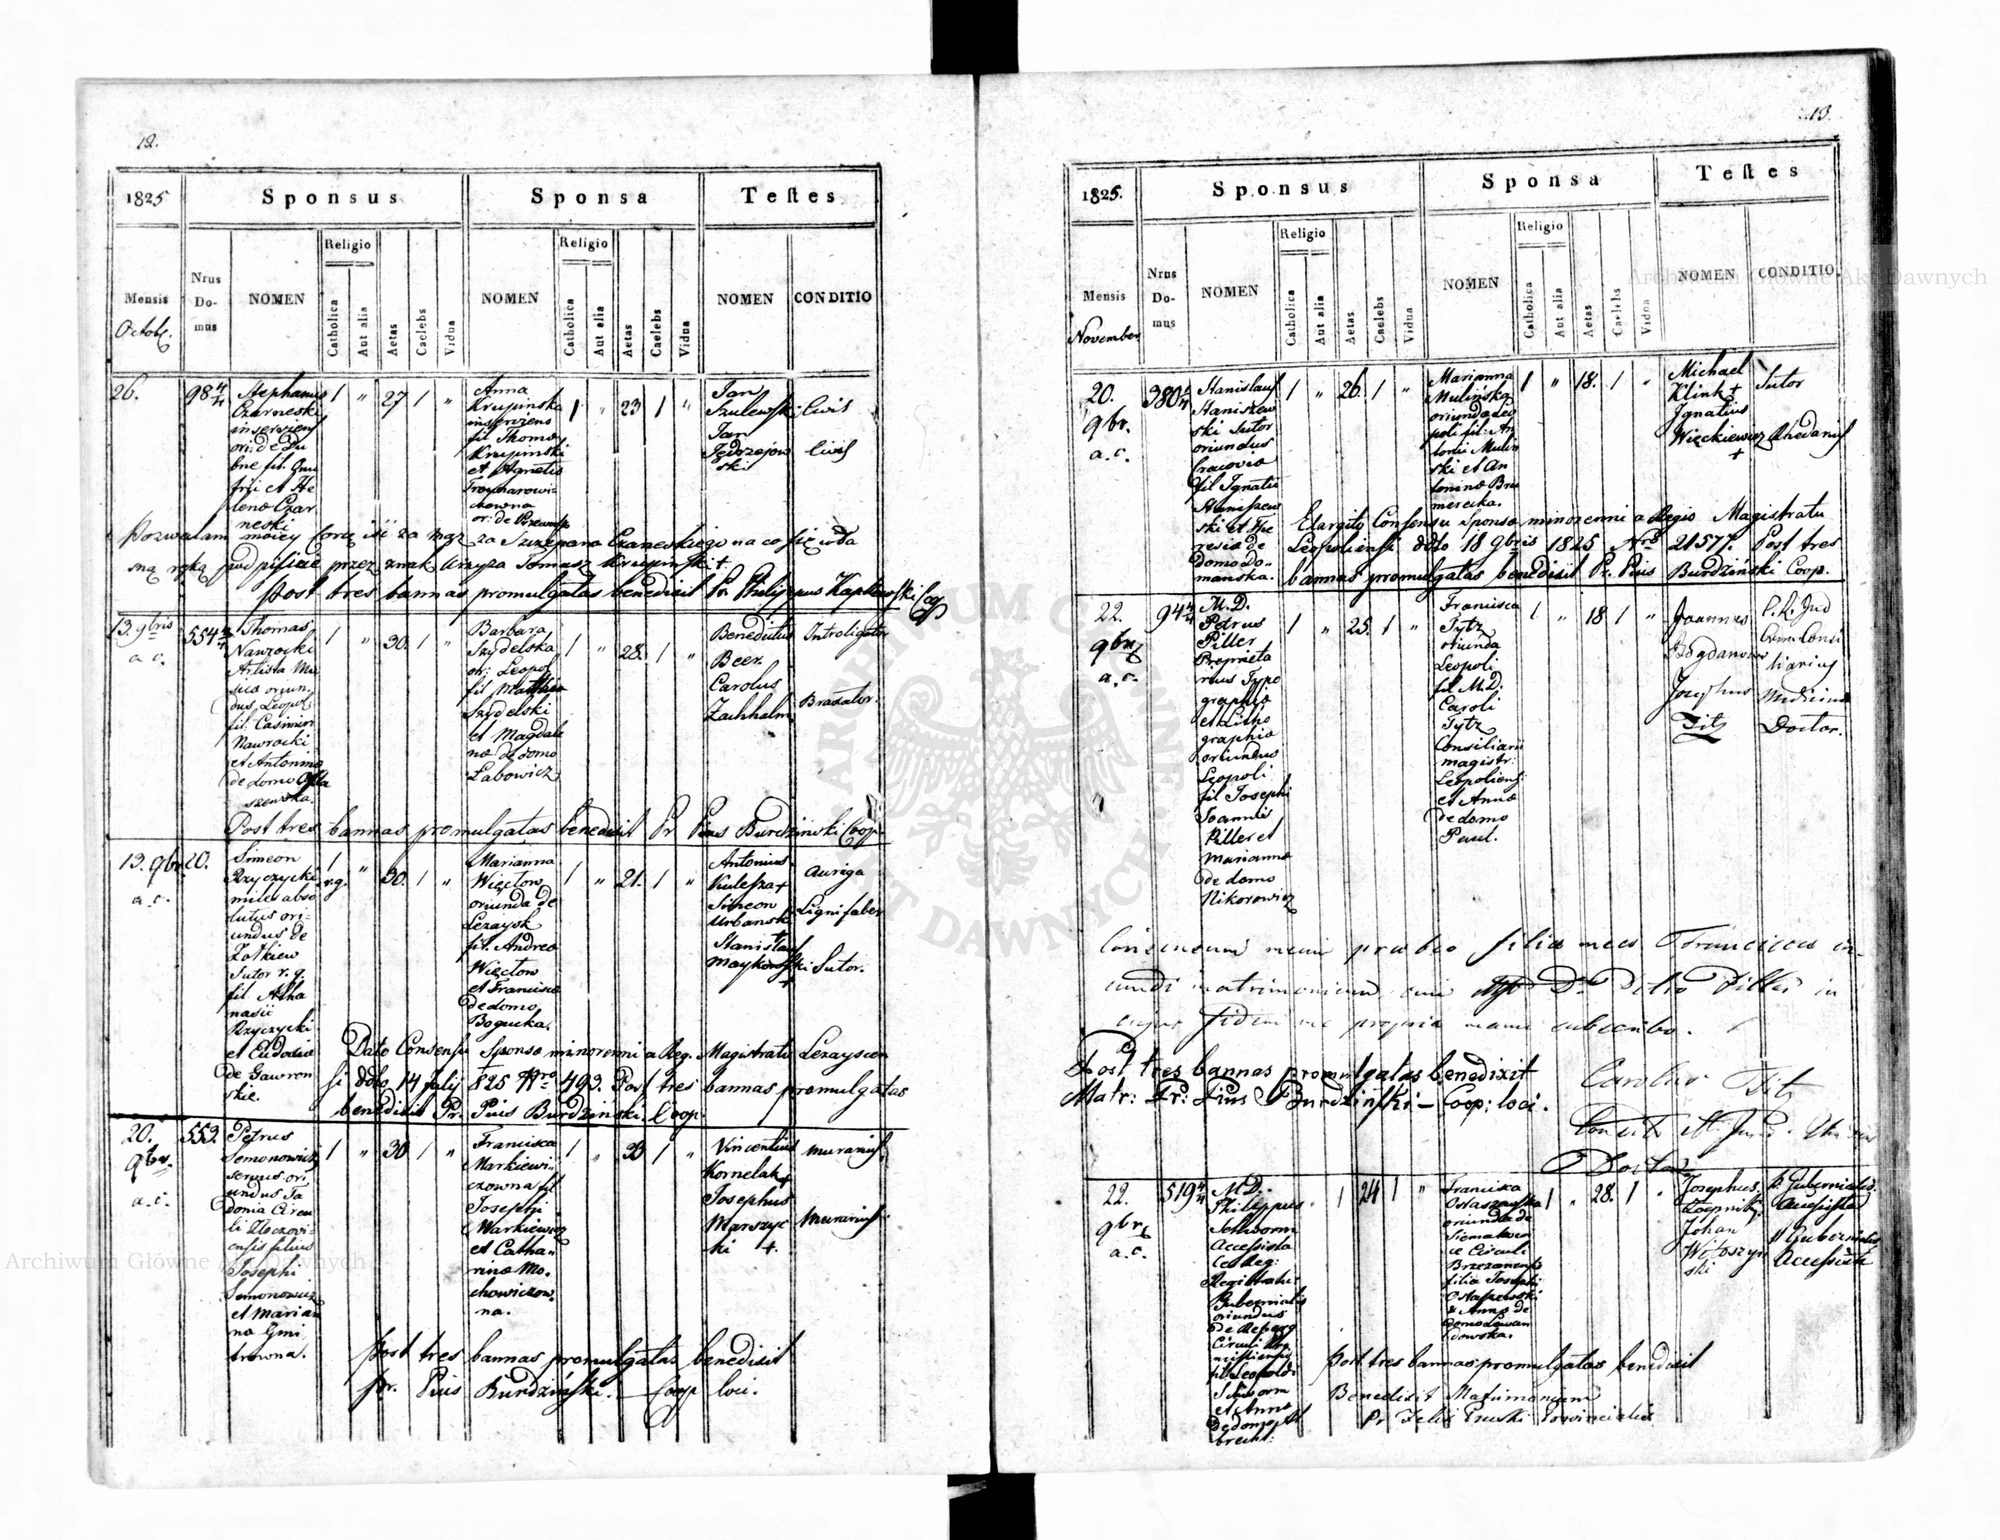 12.
1825
Sponsus
Sponsa
Teſtes
Mensis
Octobr.
Nrus Domus
NOMEN
Religio
Catholica
Aut alia
Aetas
Caelebs
Vidua
NOMEN
Religio
Catholica
Aut alia
Aetas
Caelebs
Vidua
NOMEN
CONDITIO
26.
98 4/4
Stephanus
Czarneski
inserviens
ori: de Du
bne fil. Gmi
trii et He
lena Czar
neski
1 " 27 1 "
Anna
Krupinska
inserviens
fil Thoma
Krupinski
et Agnetis
or: de
1 " 23 1 "
Jan
Szulewski
Jan
Jędrzejow
ski
Civis
Civis
Pozwalam moiey Corce iść za mąż za Szczepana Czarneskiego na co się wła
sną ręką podpisuie przez znak krzyża Tomasz Krupinski +
Post tres bannas promulgatas benedixit Pr. Philippus Kaplewski Coop
13. 9bris
a. c.
554 2/4
Thomas
Nawrocki
Artista Mu
sica oriun
dus Leopol
fil. Casimiri
Nawrocki
et Antonina
de domo
szewska.
1 " 30. 1 "
Barbara
Szydelska
or: Leopol
fil Matthia
Szydelski
et Magdale
na de domo
Labowicz
1 " 28. 1 "
Benedictus
Beer
Carolus
Zachhalm
Introligator
Braxator.
Post tres bannas promulgatas benedixit Pr Pius Burdziński Coop.
13. 9br.
a. c.
20.
Simeon
Rzyczycki
miles abso
lutus ori-
undus de
Zołkiew
Sutor r. g.
fil Atha
nasii
Rzyczycki
et Eudocia
de Gawron
skie.
1 r.g. " 30. 1 "
Marianna
Więcłow
oriunda de
Leżaysk
fil. Andrea
Więcłow
et Francisca
de domo
Bogucka.
1 " 21. 1 "
Antonius
Kulesza +
Simeon
Urbanski
Stanislaus
Maykowski
+
Auriga
Lignifaber
Sutor.
Dato Consensu Sponsa minorenni a Reg. Magistratu Lezayscen
si ddto 14 July 825 Nro 493. Post tres bannas promulgatas
benedixit Pr. Pius Burdziński Coop.
20.
9br.
a. c.
553.
Petrus
Semonowicz
servus ori
undus Ja
donia Circu
li Zloczovi
ensis filius
Josephi
Semonowicz
et Marian
na Gmi
trowna.
1 " 30 1 "
Francisca
Markiewi-
czowna fil
Josephi
Markiewicz
et Catha-
rina Mo-
chowiczow-
na.
1 " 33 1 "
Vincentius
Kornelak +
Josephus
Marszyc
ki +
murarius
murarius
Post tres bannas promulgatas benedixit
Pr. Pius Burdziński. Coop loci.
13.
1825.
Sponsus
Sponsa
Teſtes
Mensis
November
Nrus Domus
NOMEN
Religio
Catholica
Aut alia
Aetas
Caelebs
Vidua
NOMEN
Religio
Catholica
Aut alia
Aetas
Caelebs
Vidua
NOMEN
CONDITIO.
20.
9br.
a. c.
380 4/4
Stanislaus
Staniszew
ski Sutor
oriundus
Cracovia
fil Ignatii
Staniszew
ski et The
resia de
domo Do-
manska.
1 " 26. 1 "
Marianna
Mulińska
oriunda Leo
poli fil: An
tonii Mulin
ski et An
tonina Bru
mercka.
1 " 18. 1 "
Michael
Klink +
Ignatius
Więckiewicz
+
Sutor
Rhedarius
Elargito Consensu Sponsa minorenni a Regio Magistratu
Leopoliensi ddto 18 9bris 1825 Nro 21577. Post tres
bannas promulgatas benedixit Pr. Pius Burdziński Coop.
22.
9br.
a. c.
94 4/4
M. D.
Petrus
Piller
Proprieta
rius Typo
graphia
et Litho
graphia
oriundus
Leopoli
fil Josephi
Joannis
Piller et
Marianna
de domo
Nikorowicz
1 " 25. 1 "
Francisca
Tytz
oriunda
Leopoli
fil M. D.
Caroli
Tytz
Consiliarii
magistr:
Leopoliensi
et Anna
de domo
Paul.
1 " 18 1 "
Joannes
Bogdanowicz
Josephus
Titz
Medicina
Doctor.
Consensum meum præbeo filia mea Francisca in-
eundi matrimonium cum Dno Petro Piller in
cujus fidem me propria manu subscribo.
Carolus Titz
Post tres bannas promulgatas benedixit
Matr: Pr: Pius Burdziński – Coop: loci.
Doctor
22.
9br.
a. c.
519 4/4
M. D.
Philippus
Schworm
Accessista
Ces Reg:
Registratu:
Gubernialis
oriundus
de Reberg
Circuli
fil Leopoldi
Schworm
et Anna
de domo Al
brecht:
1 24 1 "
Francisca
Ostaszewska
oriunda de
Circuli
Brzezanensis
filia Josephi
Ostaszewski
& Anna de
domo Lewan
dowska.
1 " 28. 1 "
Josephus
Johan
Witoszyn
ski
Gubernialis
Accessista
Gubernialis
Accessista
Post tres bannas promulgatas benedixit
Benedixit Matrimonium
Pr Felix Provincialis
Archiwum Główne Akt Dawnych
Archiwum Główne Akt Dawnych
ARCHIWUM GŁÓWNE AKT DAWNYCH